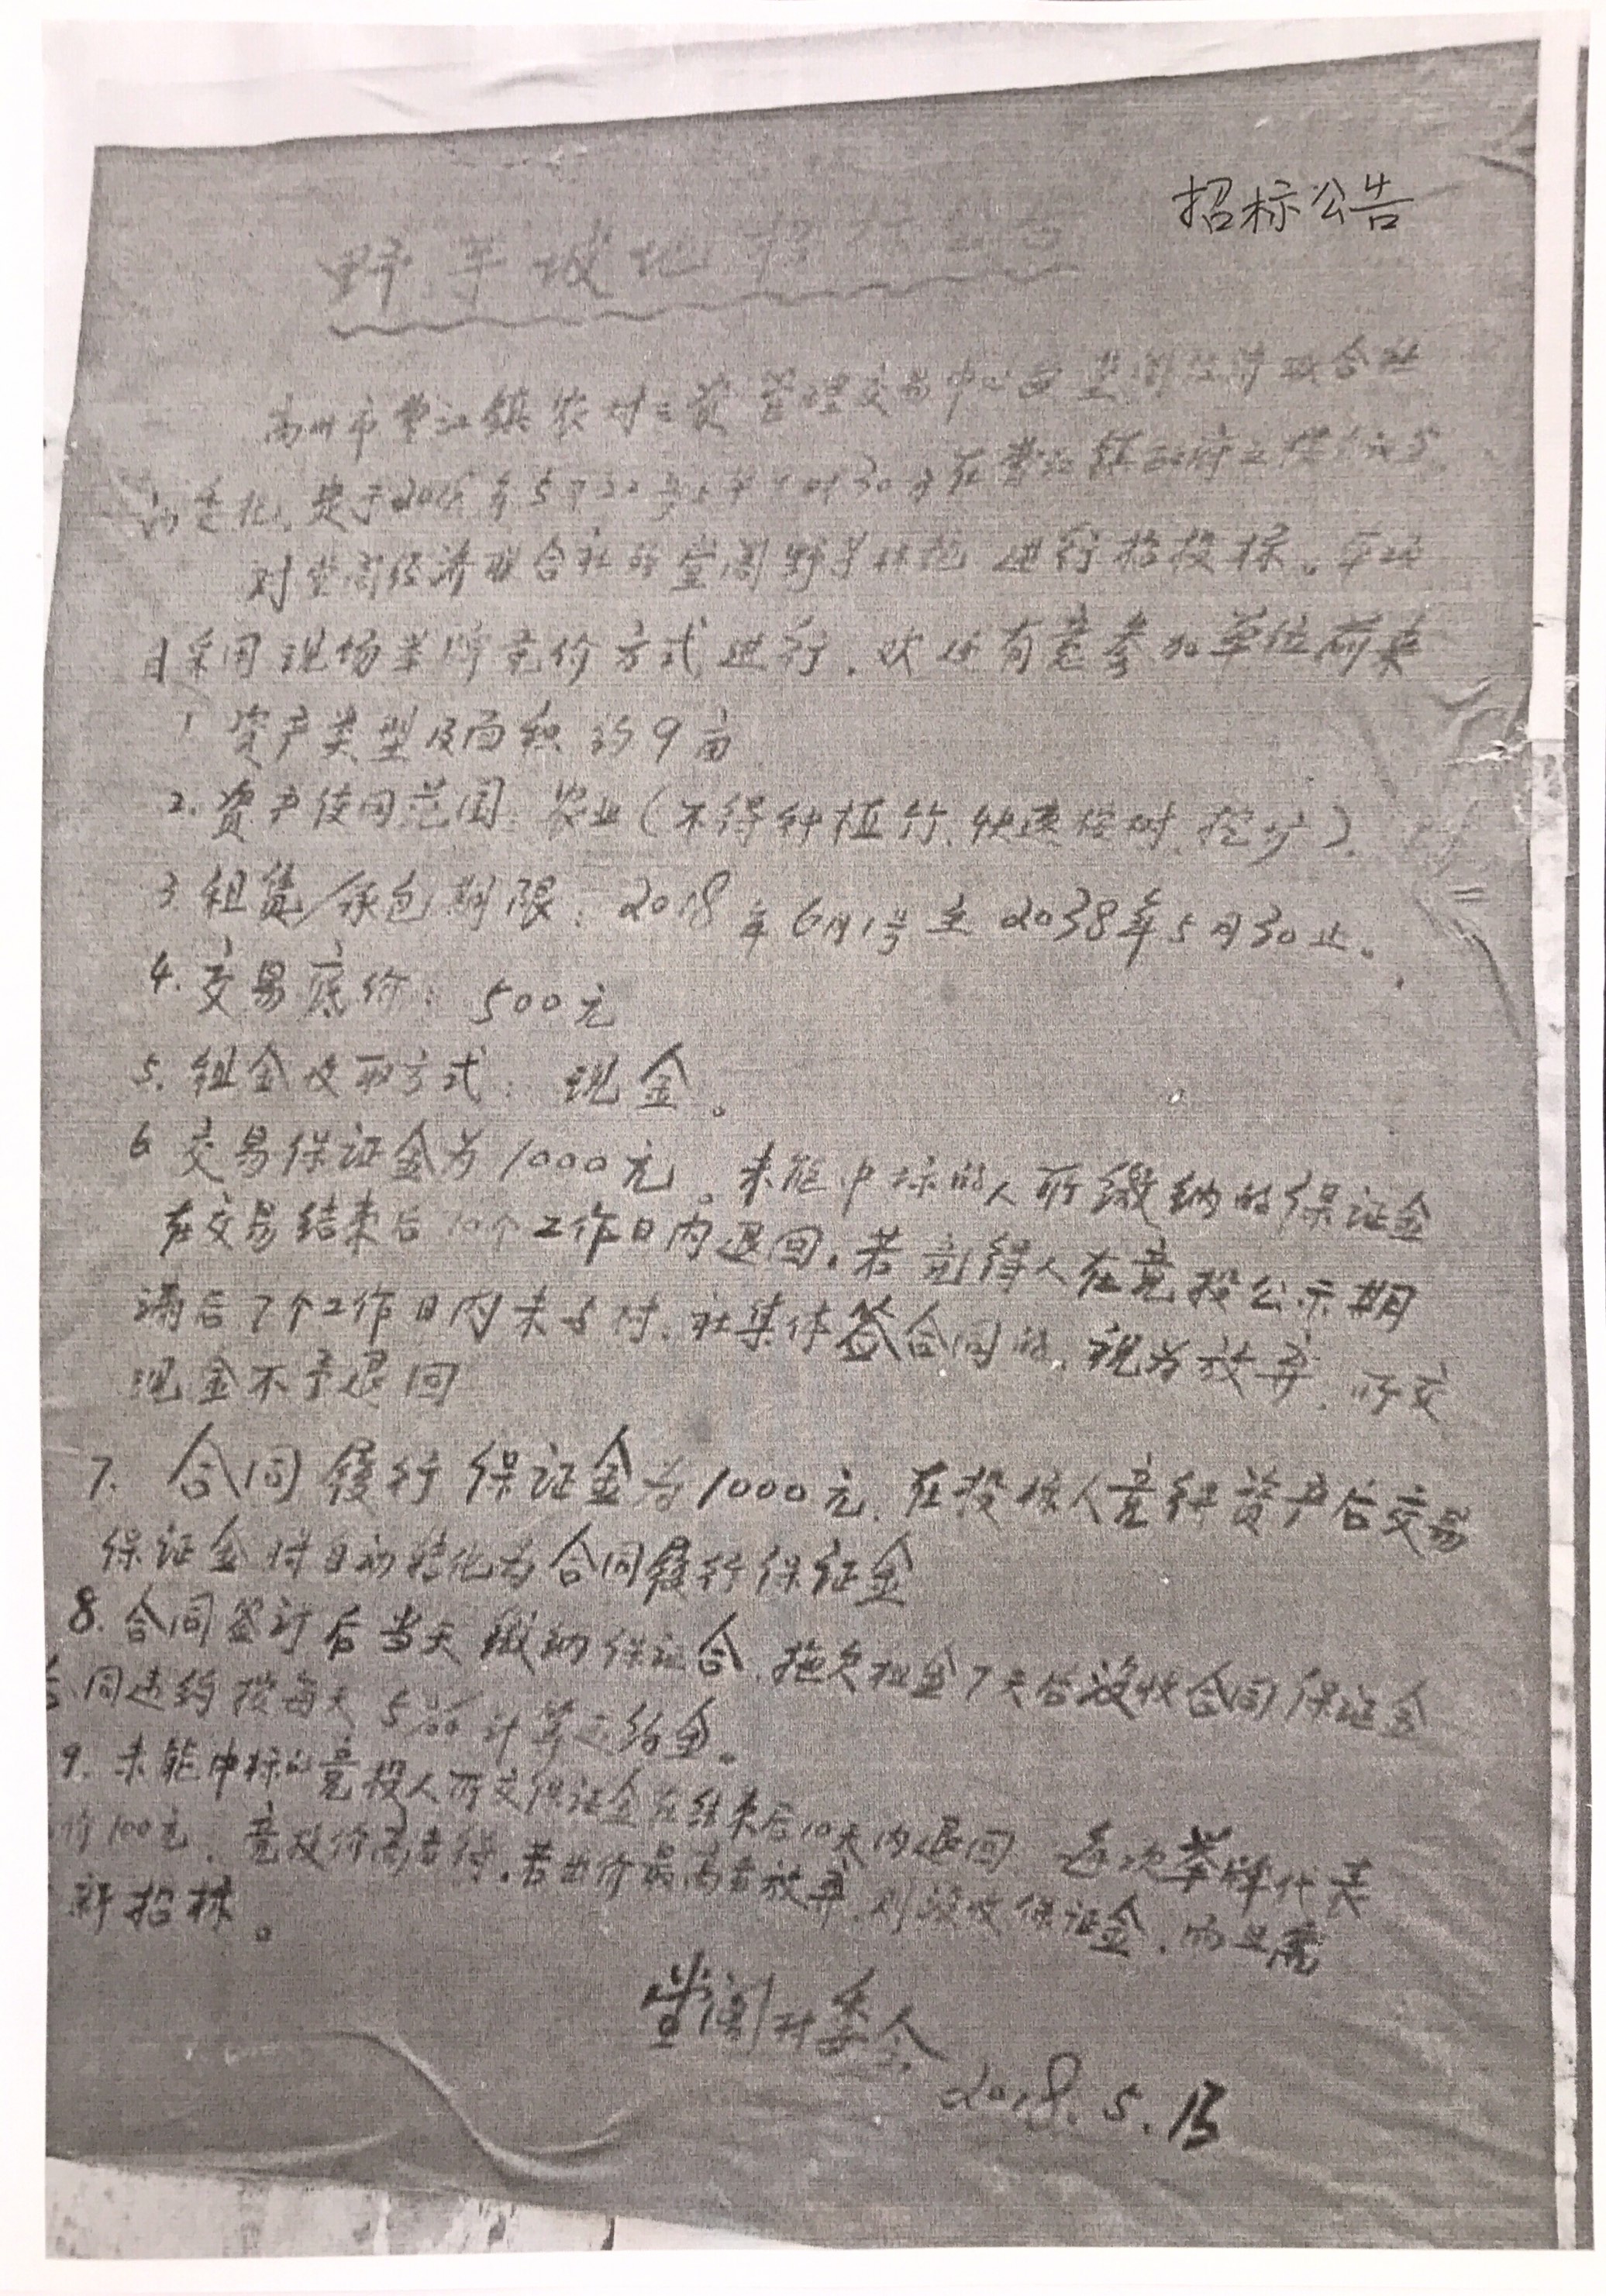 招标公告
野芋坡地招标公告
高州市曹江镇农村三资管理交易中心受堂阁经济联合社
的委托,定于2018年5月22号上午9时30分在曹江镇政府三楼会议室
对堂阁经济联合社的堂阁野芋坡地 进行招投标。本项
目采用现场举牌竞价方式进行,欢迎有意参加单位前来
1 资产类型及面积 约9亩
2. 资产使用范围: 农业(不得种植竹、快速桉树、挖沙).
3. 租赁/承包期限: 2018年6月1号至2038年5月30止。
4. 交易底价: 500元
5. 租金收取方式: 现金。
6 交易保证金为1000元。未能中标的人所缴纳的保证金
在交易结束后10个工作日内退回。若竞得人在竞投公示期
满后7个工作日内未与村、社集体签合同的,视为放弃,所交
现金不予退回
7. 合同履行保证金为1000元,在投标人竞得资产后交易
保证金将自动转化为合同履行保证金
8. 合同签订后当天缴纳保证合,拖欠租金7天后没收合同保证金
合同违约按每天5‰计算违约金。
9. 未能中标的竞投人所交保证金在结束后10天内退回 每次举牌代表
价100元,竞投价高者得,若出价最高者放弃,则没收保证金,而且需
新招标。
堂阁村委会
2018.5.13